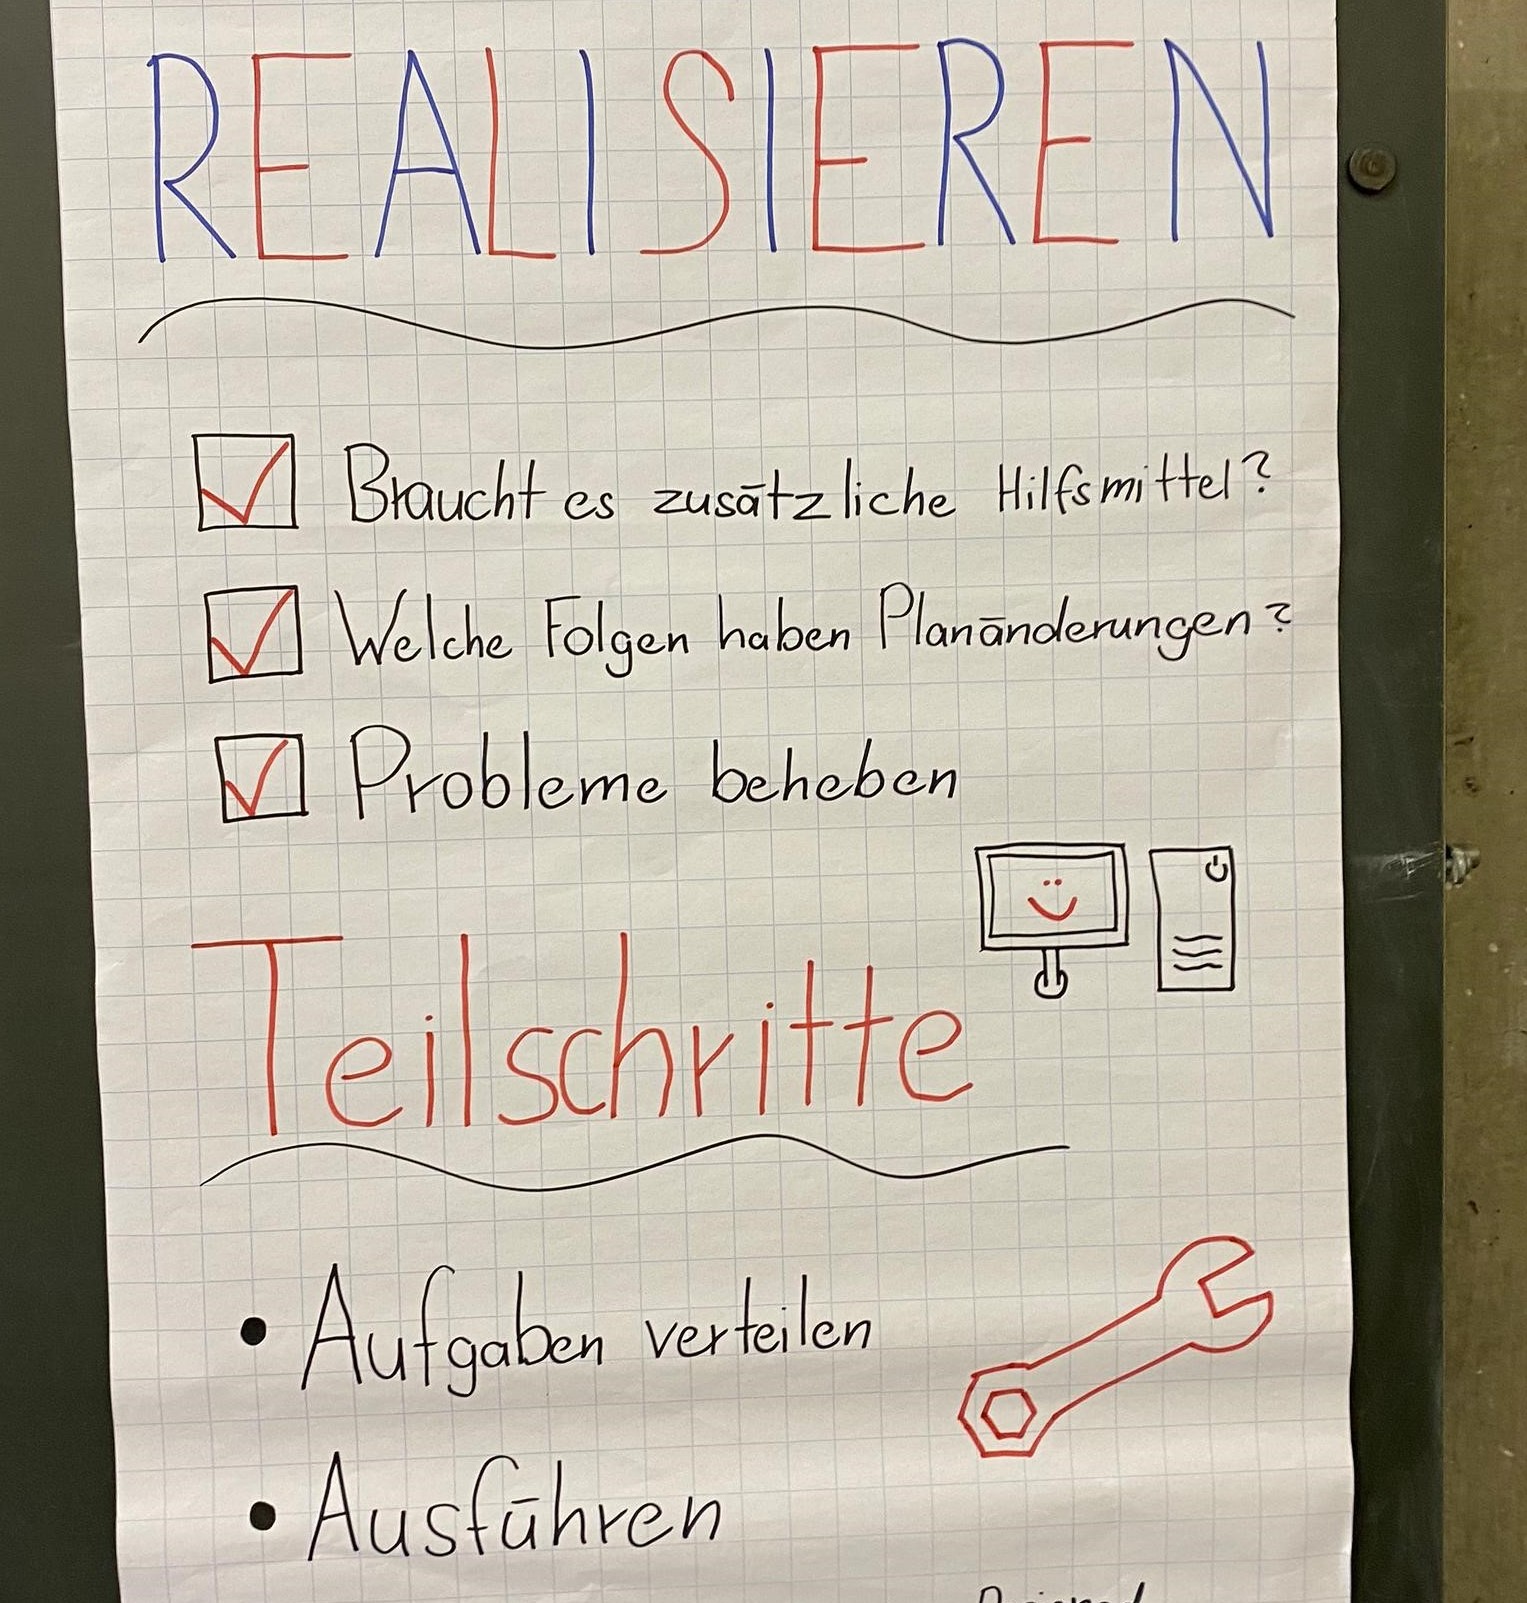 REALISIEREN
Braucht es zusätzliche Hilfsmittel?
Welche Folgen haben Planänderungen?
Probleme beheben
Teilschritte
• Aufgaben verteilen
• Ausführen